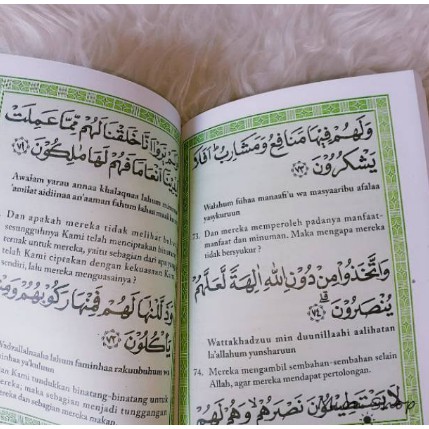 يَرَوْا اَنَّا خَلَقْنَا لَهُمْ مِّمَّا عَمِلَتْ
اَيْدِيْنَآ اَنْعَامًا فَهُمْ لَهَا مٰلِكُوْنَ ﴿٧١﴾
Awalam yarau annaa khalaqnaa lahum
'amilat aidiinaa an'aaman fahum lahaa
Dan apakah mereka tidak melihat bahwa
sesungguhnya Kami telah menciptakan binatang
ternak untuk mereka, yaitu sebagian dari apa yang
telah Kami ciptakan dengan kekuasaan Kami
sendiri, lalu mereka menguasainya ?
وَذَلَّلْنٰهَا لَهُمْ فَمِنْهَا رَكُوْبُهُمْ وَمِنْهَا
يَأْكُلُوْنَ ﴿٧٢﴾
Wadzallalnaahaa lahum faminhaa rakuubuhum wa
minhaa ya'kuluun
Kami tundukkan binatang-binatang
maka sebagiannya menjadi tunggangan
mereka dan sebagian mereka makan.
وَلَهُمْ فِيْهَا مَنَافِعُ وَمَشَارِبُ ۗ اَفَلَا
يَشْكُرُوْنَ ﴿٧٣﴾
Walahum fiihaa manaafi'u wa masyaaribu afalaa
yasykuruun
73. Dan mereka memperoleh padanya manfaat-
manfaat dan minuman. Maka mengapa mereka
tidak bersyukur ?
وَاتَّخَذُوْا مِنْ دُوْنِ اللّٰهِ اٰلِهَةً لَّعَلَّهُمْ
يُنْصَرُوْنَ ۗ ﴿٧٤﴾
Wattakhadzuu min duunillaahi aalihatan
la'allahum yunsharuun
74. Mereka mengambil sembahan-sembahan selain
Allah, agar mereka mendapat pertolongan.
لَا يَسْتَطِيْعُوْنَ نَصْرَهُمْ وَهُمْ لَهُمْ